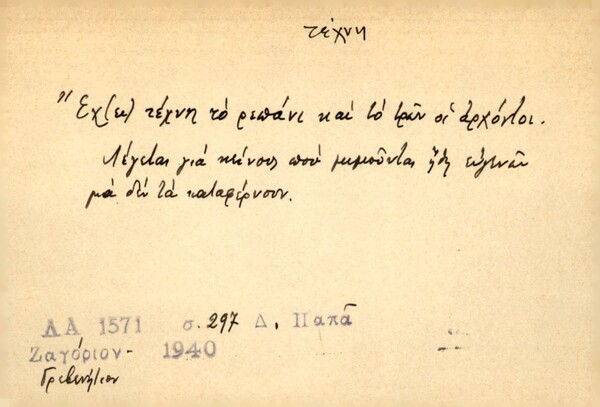 τέχνη
Ἔχ(ει) τέχνη τὸ ρεπάνι καὶ τὸ τρῶν οἱ ἀρχόντοι.
Λέγεται γιὰ κείνους ποὺ μιμοῦνται ἤθη εὐγενῶν
μὰ δὲν τὰ καταφέρνουν.
ΛΑ 1571 σ. 297 Δ. Παπᾶ
Ζαγόριον - 1940
Γρεβενήτιον